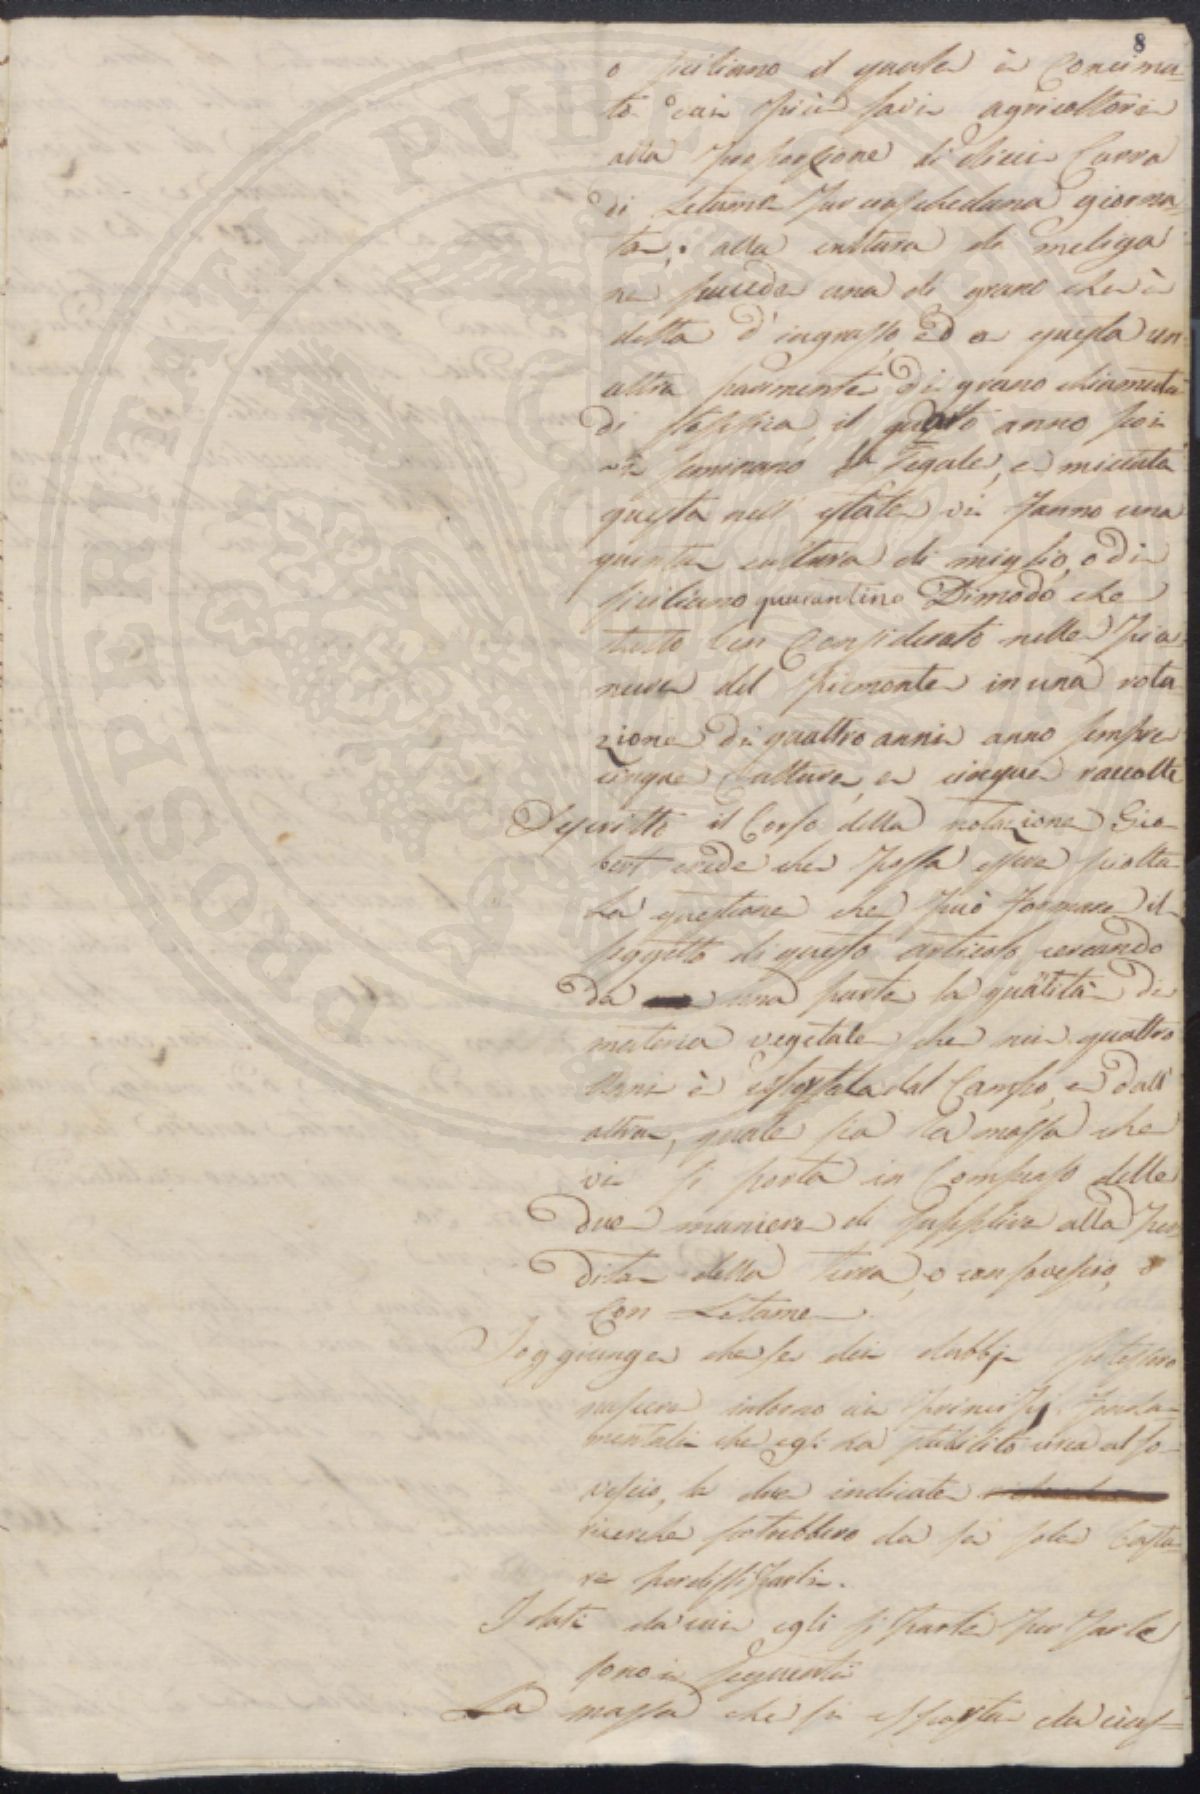 8
o siciliano il quale è Concima=
to dai più savi agricoltori
alla proporzione di dieci Carra
di Letame per ciascheduna giorna=
ta; alla cultura di meliga
ne succede una di grano che è
detta d'ingrasso, ed a questa un
altra parimente di grano chiamata
di stoppia, il quarto anno poi
vi seminano la Segale, e mietuta
questa nell'estate vi fanno una
quinta cultura di miglio, o di
siciliano quarantino Dimodo che
tutto ben Considerato nelle pia
nure del piemonte in una rota
zione di quattro anni anno sempre
cinque Culture, e cinque raccolte
Descritto il Corso della rotazione Gio=
bert crede che possa essere sciolta
la questione che può formare il
soggetto di questo articolo cercando
da una parte la quãtità di
materia vegetale che nei quattro
anni è esportata dal Campo, e dall'
altra, quale sia la massa che
vi si porta in Compenso delle
due maniere di supplire alla per
dita della terra, o con sovescio, o
Con Letame.
Soggiunge che se dei dubbj potessero
nascere intorno ai principj fonda=
mentali che egli ha stabilito circa al so=
vescio, le due indicate
ricerche potrebbero da se sole basta=
re per dissiparli.
I dati da cui egli si parte per farle
sono i seguenti
La massa che si esporta da cias=